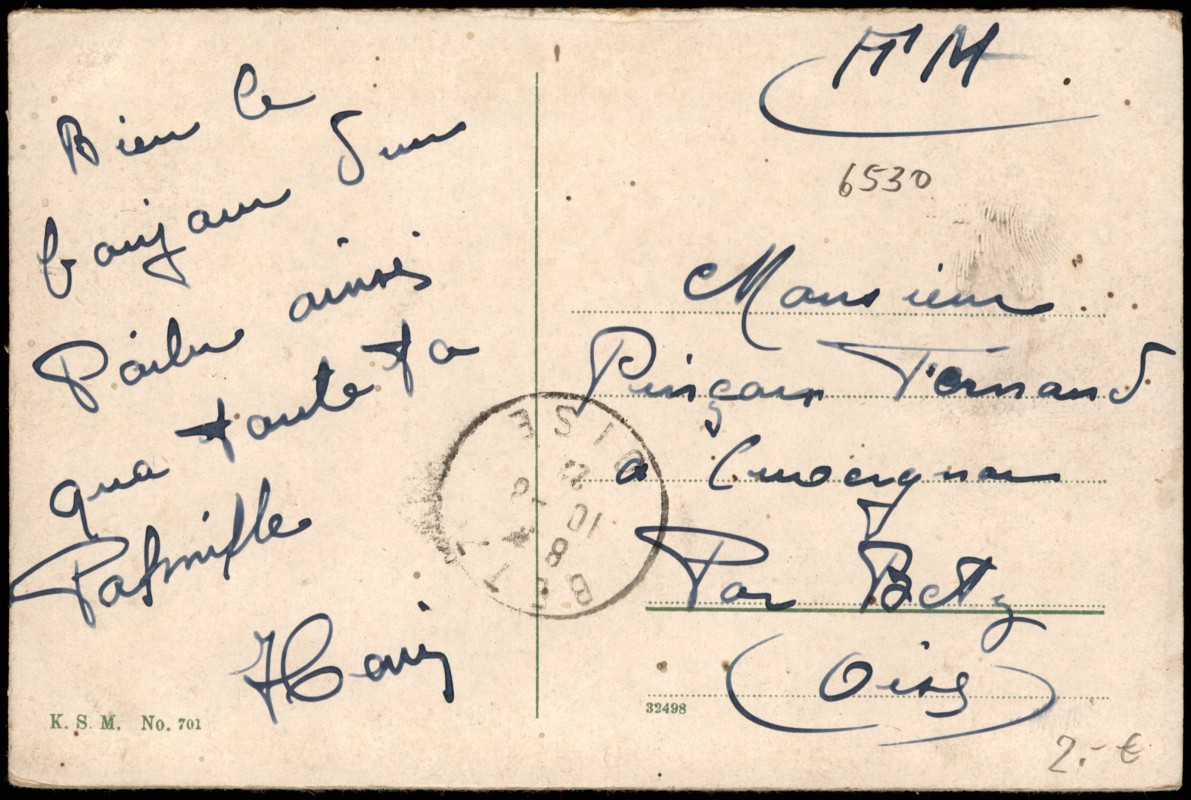 Bien le
bonjour d'un
Poilu ainsi
que toute ta
famille
Henri
K. S. M. No. 701
FM
6530
Monsieur
Pinçon Fernand
a
Par Betz
(Oise)
32498
2.- €
BETZ
OISE
8
10
22